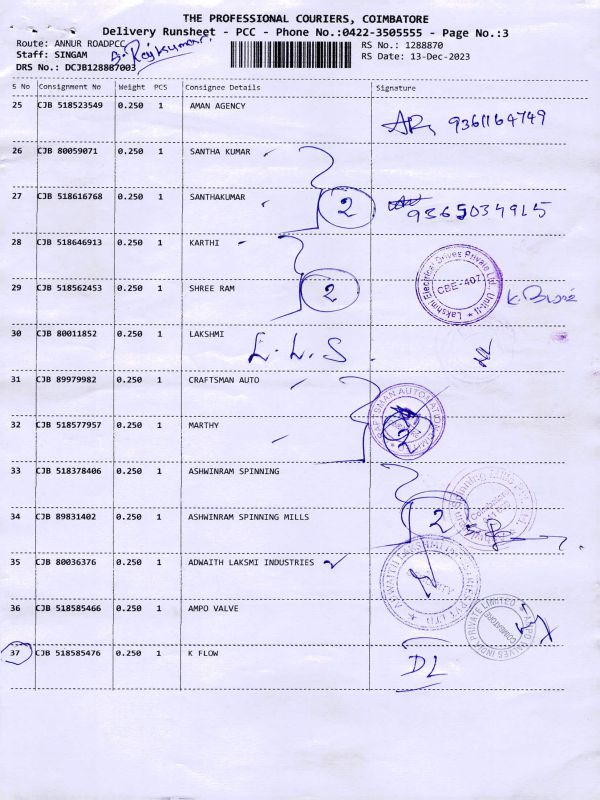 THE PROFESSIONAL COURIERS, COIMBATORE
Delivery Runsheet - PCC - Phone No.:0422-3505555 - Page No.:3
Route: ANNUR ROADPCC
RS No.: 1288870
Staff: SINGAM
B. Rajkumar
RS Date: 13-Dec-2023
DRS No.: DCJB128887003
S No Consignment No Weight PCS Consignee Details Signature
25 CJB 518523549 0.250 1 AMAN AGENCY 9361164749
26 CJB 80059071 0.250 1 SANTHA KUMAR
27 CJB 518616768 0.250 1 SANTHAKUMAR 2 9365034915
28 CJB 518646913 0.250 1 KARTHI
Lakshmi Electrical Drives Private Ltd. Unit-II
CBE-407
29 CJB 518562453 0.250 1 SHREE RAM 2
30 CJB 80011852 0.250 1 LAKSHMI L.L.S.
31 CJB 89979982 0.250 1 CRAFTSMAN AUTO
32 CJB 518577957 0.250 1 MARTHY 2
33 CJB 518378406 0.250 1 ASHWINRAM SPINNING
34 CJB 89831402 0.250 1 ASHWINRAM SPINNING MILLS 2
35 CJB 80036376 0.250 1 ADWAITH LAKSMI INDUSTRIES
36 CJB 518585466 0.250 1 AMPO VALVE
37 CJB 518585476 0.250 1 K FLOW DL